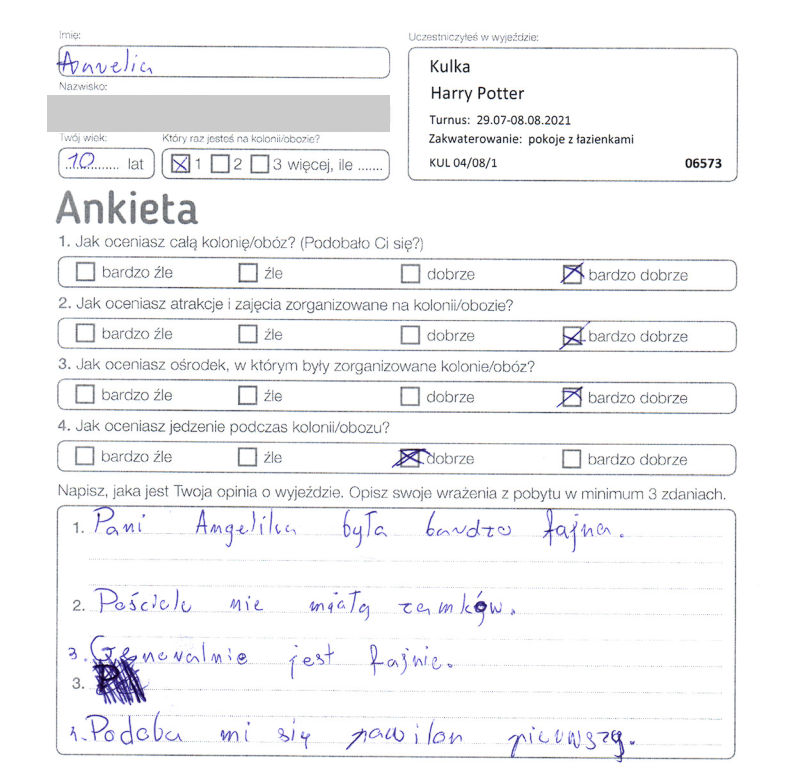 Imię:
Aurelia
Nazwisko:
Twój wiek:
Który raz jesteś na kolonii/obozie?
10 lat
1 2 3 więcej, ile .......
Uczestniczyłeś w wyjeździe:
Kulka
Harry Potter
Turnus: 29.07-08.08.2021
Zakwaterowanie: pokoje z łazienkami
KUL 04/08/1 06573
Ankieta
1. Jak oceniasz całą kolonię/obóz? (Podobało Ci się?)
bardzo źle źle dobrze bardzo dobrze
2. Jak oceniasz atrakcje i zajęcia zorganizowane na kolonii/obozie?
bardzo źle źle dobrze bardzo dobrze
3. Jak oceniasz ośrodek, w którym były zorganizowane kolonie/obóz?
bardzo źle źle dobrze bardzo dobrze
4. Jak oceniasz jedzenie podczas kolonii/obozu?
bardzo źle źle dobrze bardzo dobrze
Napisz, jaka jest Twoja opinia o wyjeździe. Opisz swoje wrażenia z pobytu w minimum 3 zdaniach.
1. Pani Angelika była bardzo fajna.
2. Pościele nie miały zamków.
3. Generalnie jest fajnie.
3.
4. Podoba mi się pawilon pierwszy.